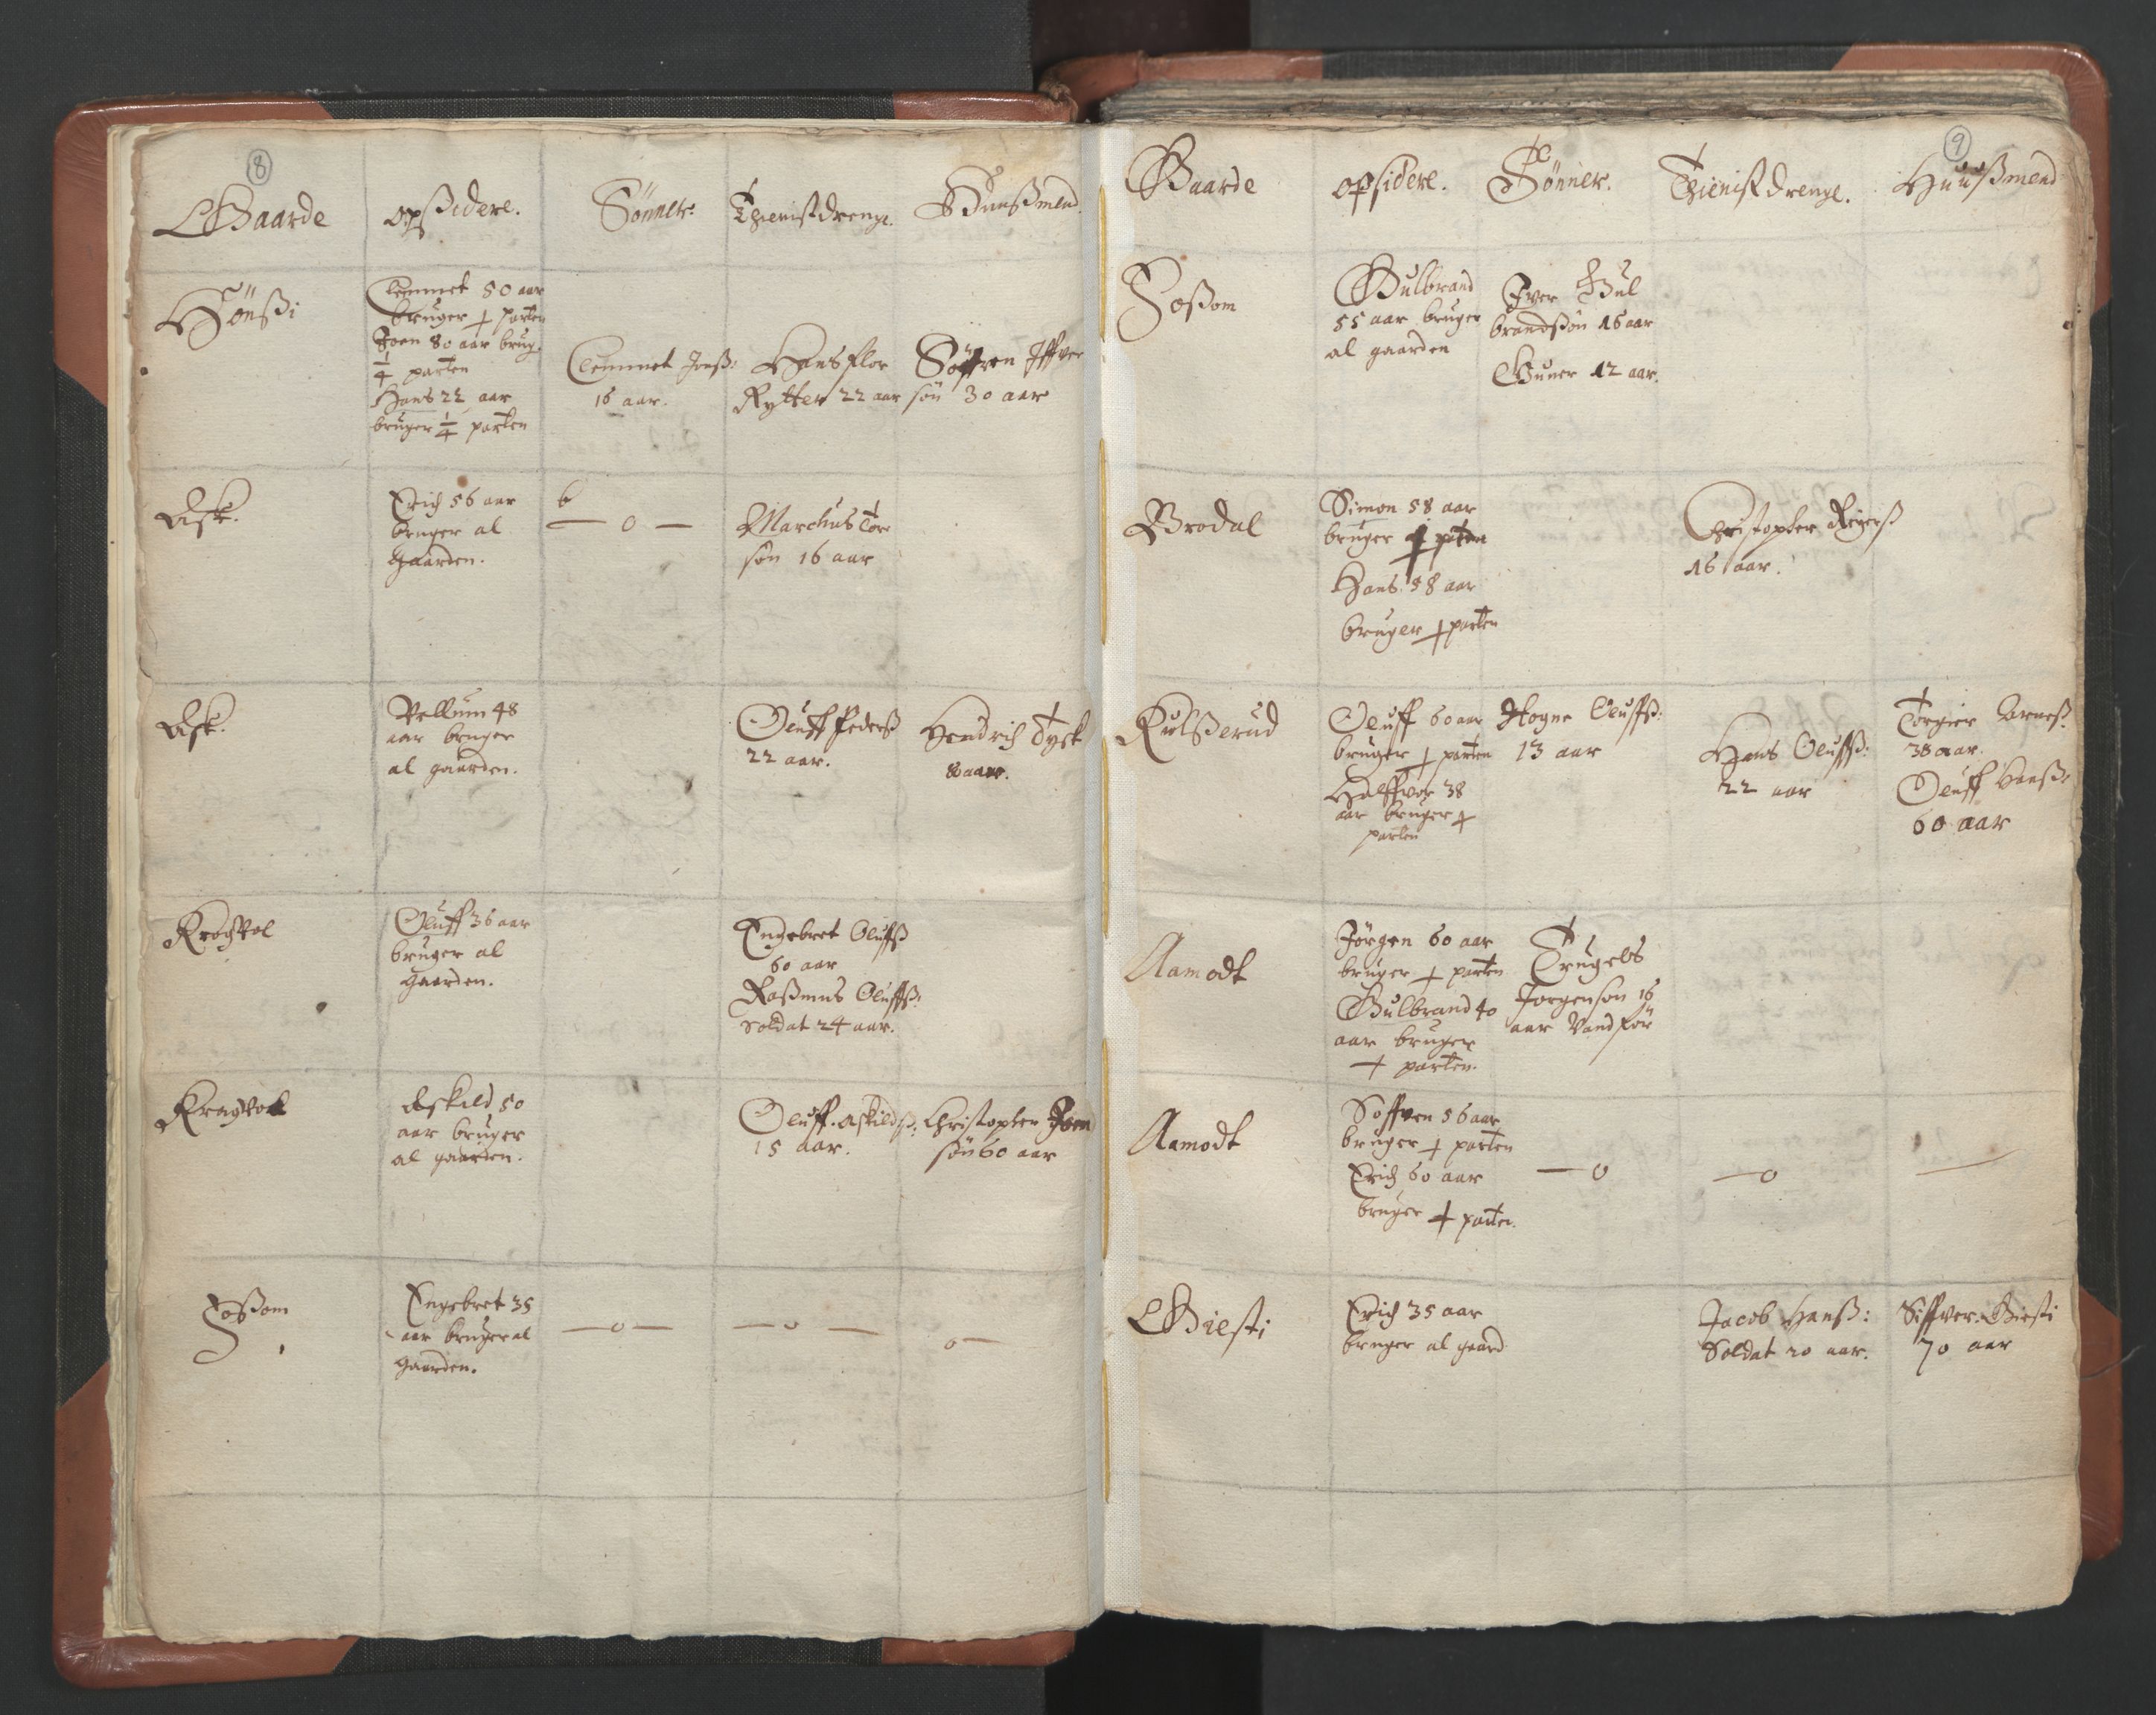 8
Gaarde
opsidere.
Sönner.
Thienistdrenge.
Huusmend.
Hönsi
Clemmet 50 aar
bruger ½ parten
Joen 80 aar brug.
¼ parten
Hans 22 aar
bruger ¼ parten
Clemmet Jonß:
16 aar.
Hans flor
Rytter 22 aar
Söffren Iffver
sön 30 aar
Ask.
Erich 56 aar
bruger al
gaarden.
— o —
Marchus Tor
sön 16 aar
Ask.
Vellum 48
aar bruger
al gaarden.
Oluff Pederß
22 aar.
Hendrich Tysk
80 aar.
Krogvol
Oluff 36 aar
bruger al
gaarden.
Engebret Oluffß
60 aar
Raßmus Oluffß:
soldat 24 aar.
Kragvol
Askild 50
aar bruger
al gaarden.
Oluff Askildß:
15 aar.
Christopher Joen
sön 60 aar
Foßom
Engebret 35
aar bruger al
gaarden.
— o —
— o —
o —
9
Gaarde
opsidere.
Sönner.
Thienistdrenge.
Huußmend
Foßom
Gulbrand
55 aar bruger
al gaarden
Iver Gul
brandßön 16 aar
Guner 12 aar.
Brodal
Simon 58 aar
bruger ½ parten
Hans 58 aar
bruger ½ parten
Christopher Reyerß
16 aar.
Kulßerud
Oluff 60 aar
bruger ½ parten
Halffvor 38
aar bruger ½
parten
Hogne Oluffß:
13 aar
Hans Oluffß:
22 aar
Torgier Arneß.
38 aar.
Oluff Hanß:
60 aar
Aamodt
Jörgen 60 aar
bruger ½ parten
Gulbrand 40
aar bruger
½ parten.
Trugels
Jorgensön 16
aar Vandför
Aamodt
Söffren 56 aar
bruger ½ parten
Erich 60 aar
bruger ½ parten.
— o
— o
—
Giesti
Erich 35 aar
bruger al gaard
Jacob Hanß:
Soldat 20 aar.
Siffver Giesti
70 aar